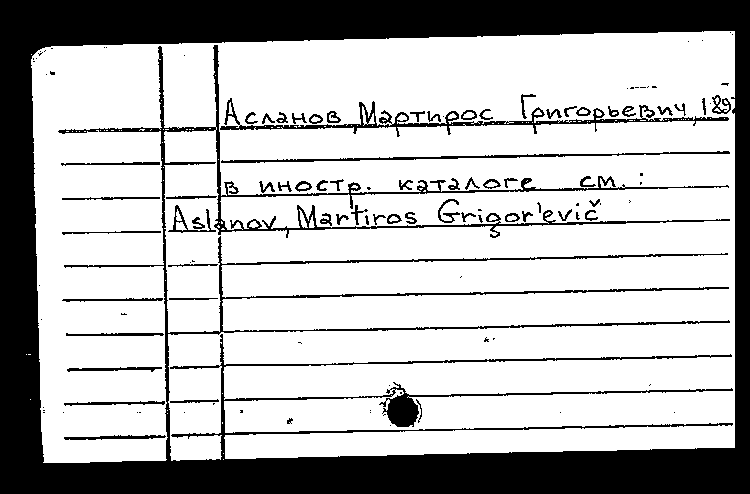 Асланов, Мартирос Григорьевич, 1897
в иностр. каталоге см.:
Aslanov, Martiros Grigor'evič